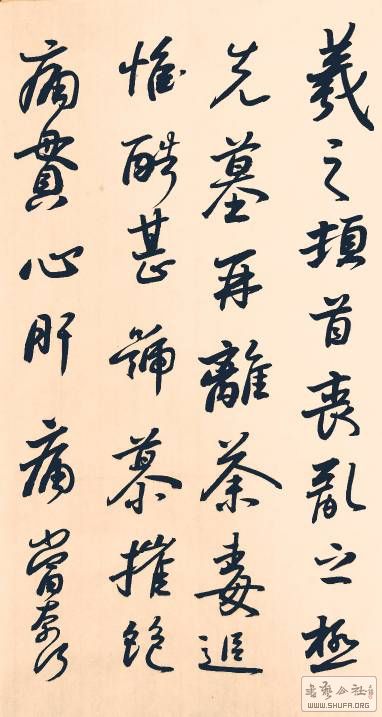 羲之頓首喪亂之極
先墓再離荼毒追
惟酷甚號慕摧絶
痛貫心肝痛當奈何
WWW.SHUFA.ORG